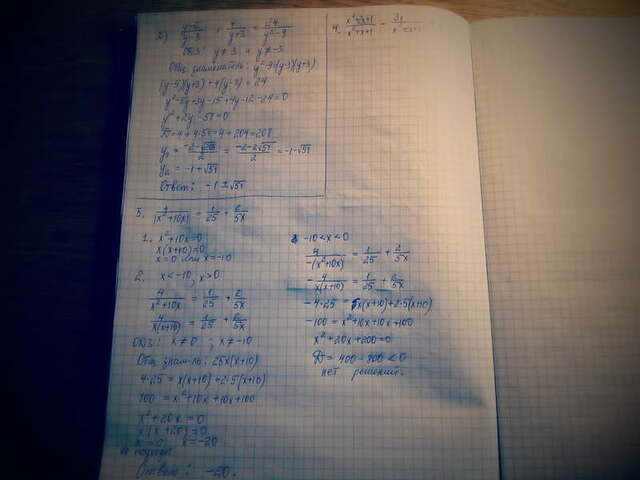 2) (y-5)/(y-3) + 4/(y+3) = 24/(y²-9)
ОДЗ: y≠3 и y≠-3
Общ. знаменатель: y²-9=(y-3)(y+3)
(y-5)(y+3)+4(y-3)=24
y²-5y+3y-15+4y-12-24=0
y²+2y-51=0
D=4+4·51=4+204=208
= (-2-2√51)/2 = -1-√51
= -1+√51
Ответ: -1±√51
4.
3.
4/|x²+10x| = 1/25 + 2/5x
1. x²+10x=0
x(x+10)=0
x=0 или x=-10
2. x<-10, x>0
4/(x²+10x) = 1/25 + 2/5x
4/x(x+10) = 1/25 + 2/5x
ОДЗ: x≠0 ; x≠-10
Общ. знам-ль: 25x(x+10)
4·25 = x(x+10)+2·5(x+10)
100 = x²+10x+10x+100
x²+20x=0
x(x+20)=0
x=0 x=-20
не подходит
Ответ: -20.
-10<x<0
4/-(x²+10x) = 1/25 + 2/5x
-4/x(x+10) = 1/25 + 2/5x
-4·25 = x(x+10)+2·5(x+10)
-100 = x²+10x+10x+100
x²+20x+200=0
D=400-800<0
нет решений.